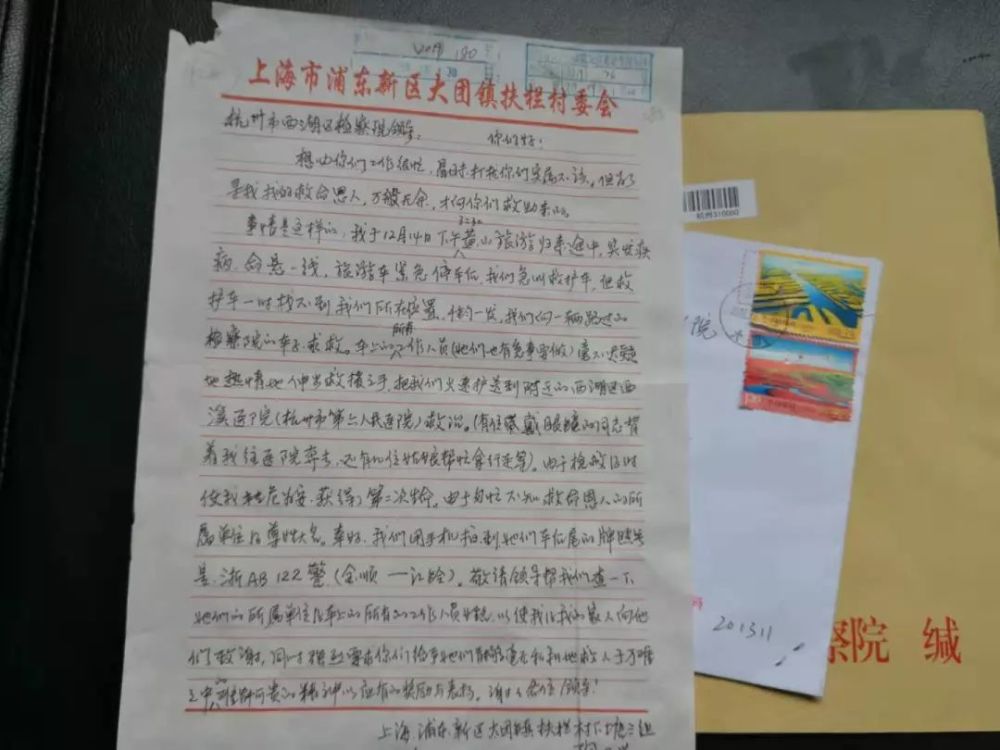 上海市浦东新区大团镇扶栏村委会
杭州市西湖区检察院领导: 你们好!
想必你们工作很忙,打扰你们实属不该。但为了
寻找我的救命恩人,万般无奈,才向你们救助来的。
事情是这样的,我于12月14日下午黄山旅游归来途中,突发疾
病,命悬一线,旅游车紧急停车后,我们急叫救护车,但救
护车一时找不到我们所在位置,千钧一发,我们向一辆路过的
检察院的车子求救。车上的所有工作人员(她们也有急事要做)毫不迟疑
地热情地伸出救援之手,把我们火速护送到附近的西湖区西
溪医院(杭州市第六人民医院)救治。(有位戴眼镜的同志背
着我往医院奔去,还有几位姑娘帮忙拿行李等)。由于抢救及时
使我转危为安,获得了第二次生命。由于匆忙不知救命恩人的所
属单位及尊姓大名。幸好,我们用手机拍到她们车后尾的牌照号
是,浙AB122警(全顺一江铃)。敬请领导帮我们查一下
她们的所属单位及车上的所有的工作人员姓名,以使我及我的家人向他
们致谢,同时 要求你们给予她们 毫无私利地救人于万难
之中 难能可贵的精神以应有的奖励与表扬。谢谢各位领导!
上海浦东新区大团镇扶栏村 组
杭州310000
院
1.20
201311
察院 缄